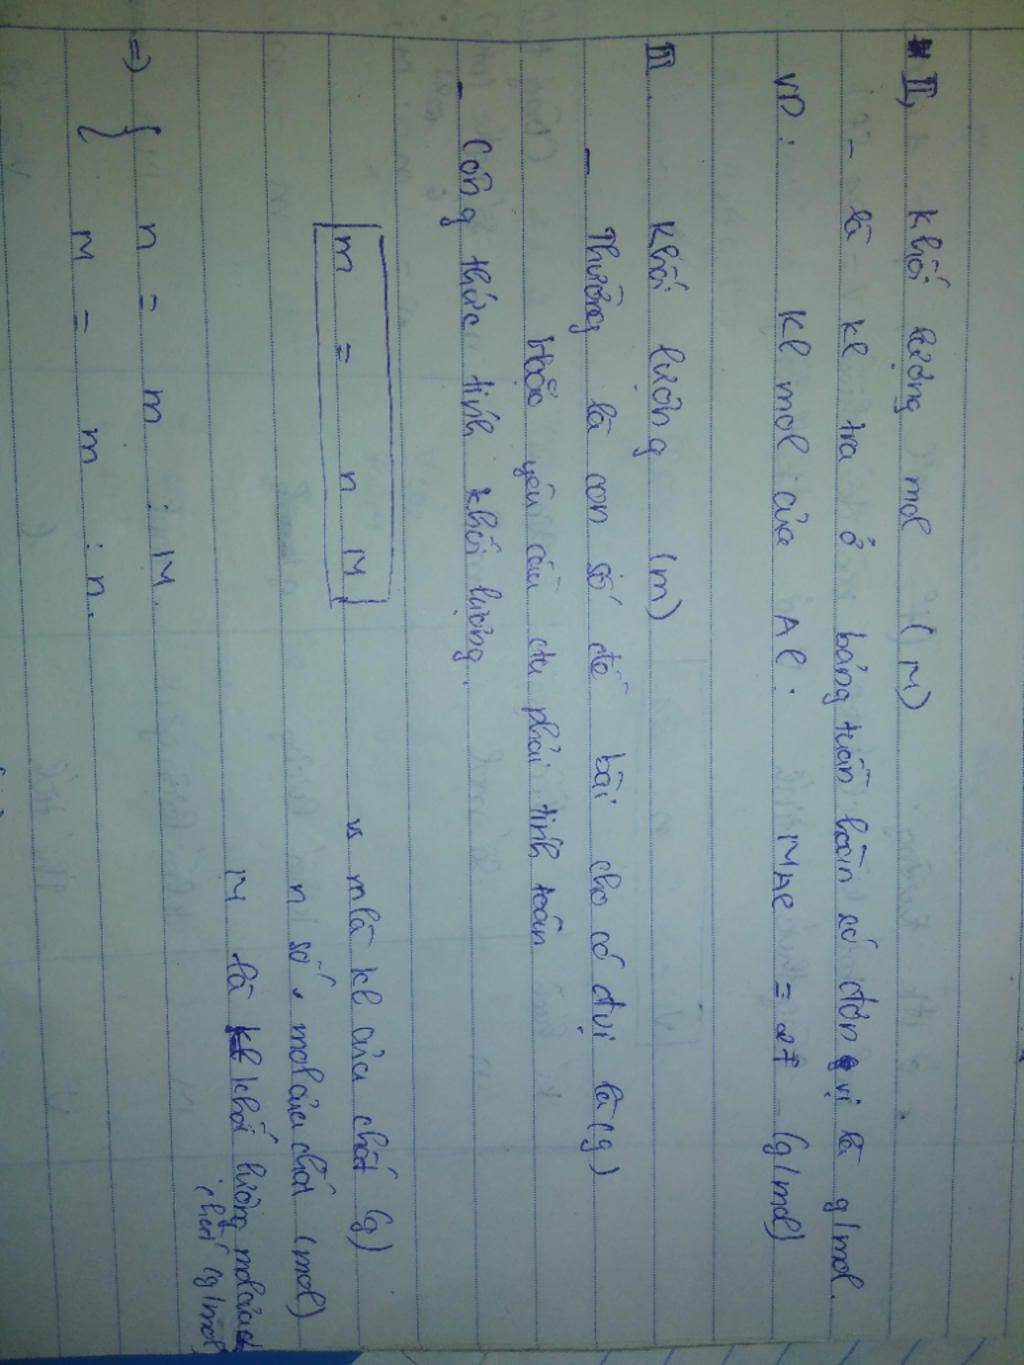 II, Khối lượng mol (M)
- là kl tra ở bảng tuần hoàn có đơn vị là g/mol.
VD: Kl mol của Al: MAl = 27 (g/mol)
III. Khối lượng (m)
- Thường là con số đề bài cho có đvị là (g)
Hoặc yêu cầu ta phải tính toán
- Công thức tính khối lượng.
m = n M
m là kl của chất (g)
n số mol của chất (mol)
M là khối lượng mol của
chất (g/mol
=> { n = m : M.
M = m : n.